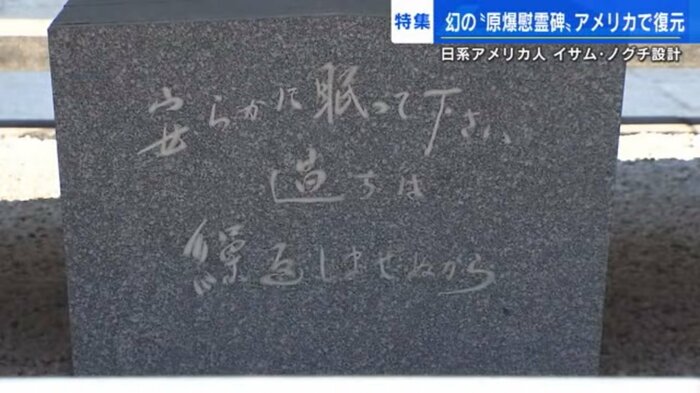 特集 幻の〝原爆慰霊碑〟アメリカで復元
日系アメリカ人 イサム・ノグチ設計
安らかに眠って下さい
過ちは
繰返しませぬから